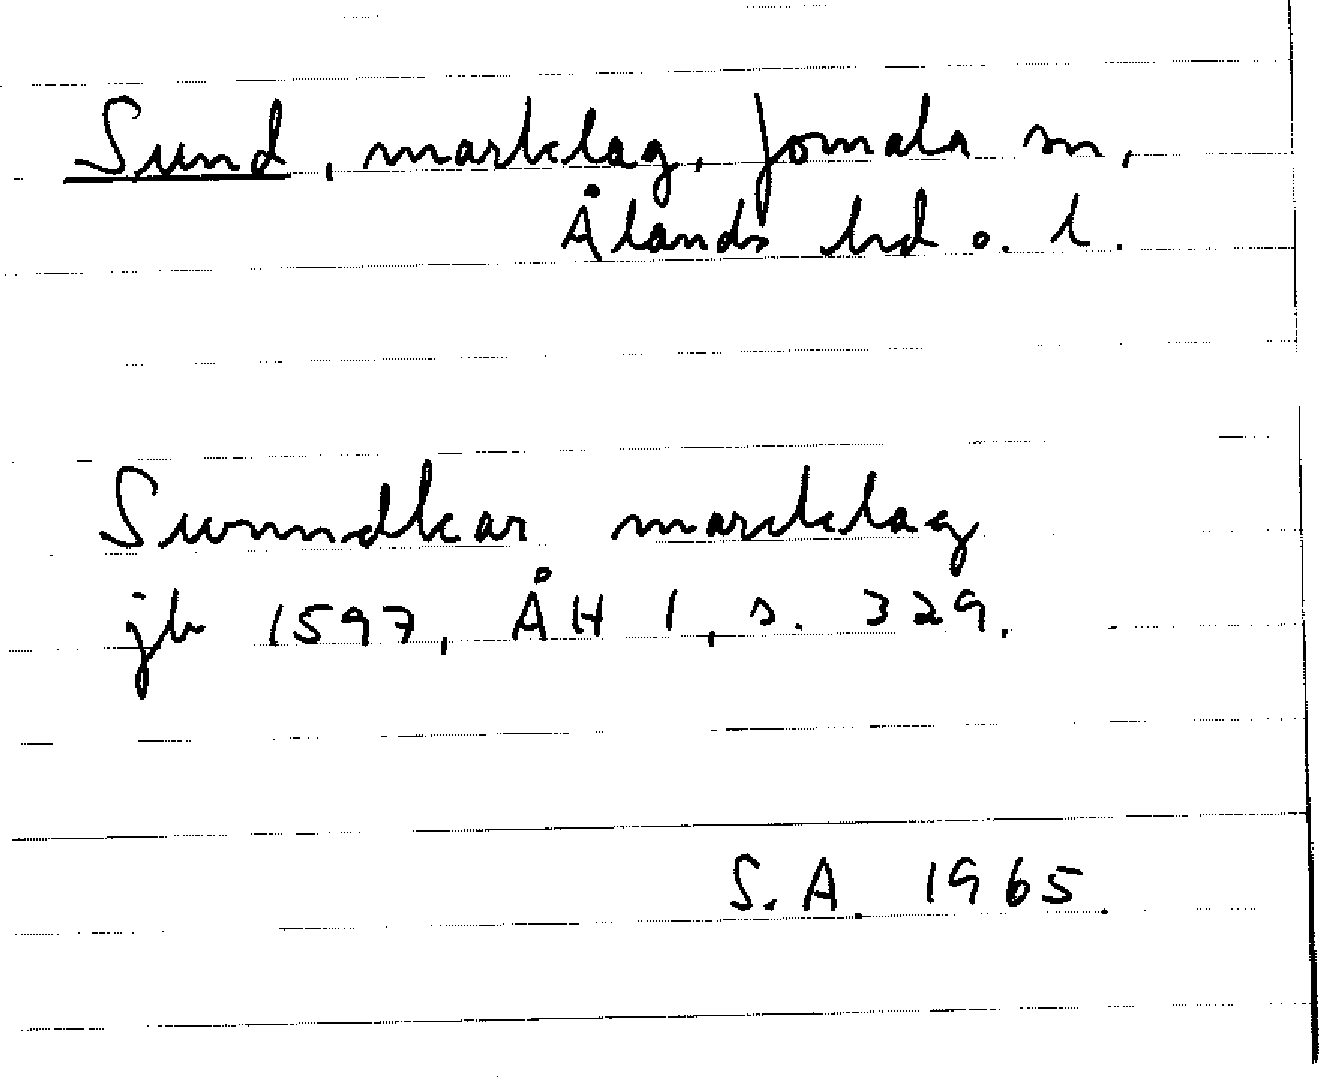 Sund, marklag, Jomala sn,
Ålands hd o. l.
Swnndkar marcklag
jb 1597, ÅH 1, s. 329.
S. A. 1965.